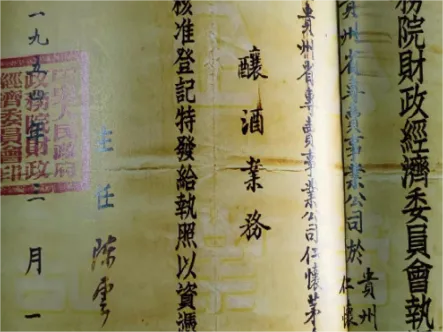 務院財政經濟委員會執
貴州省專賣事業公司於貴州
仁懷
貴州省專賣事業公司仁懷茅
釀酒業務
核准登記特發給執照以資憑
主任 陳雲
中央人民政府
政務院財政
經濟委員會印
一九五 年二月一